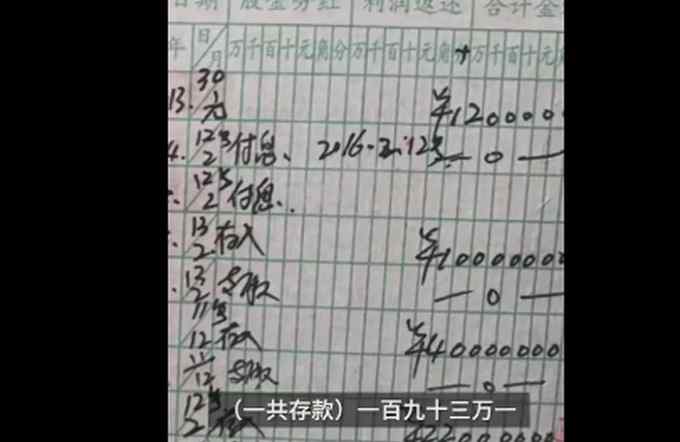 日期 股金分红 利润返还 合计金
年 日/月 万千百十元角分万千百十元角分万千百十元角
13. 30/元 ¥120000
4. 12号/2 付息、 2016.2.12号 —0—
12号/2 付息.
13/2 存入 ¥10000000
13/2 支取 —0—
11号/12 存入 ¥40000000
11/12 支取 —0—
12号/2 存入
(一共存款)一百九十三万一